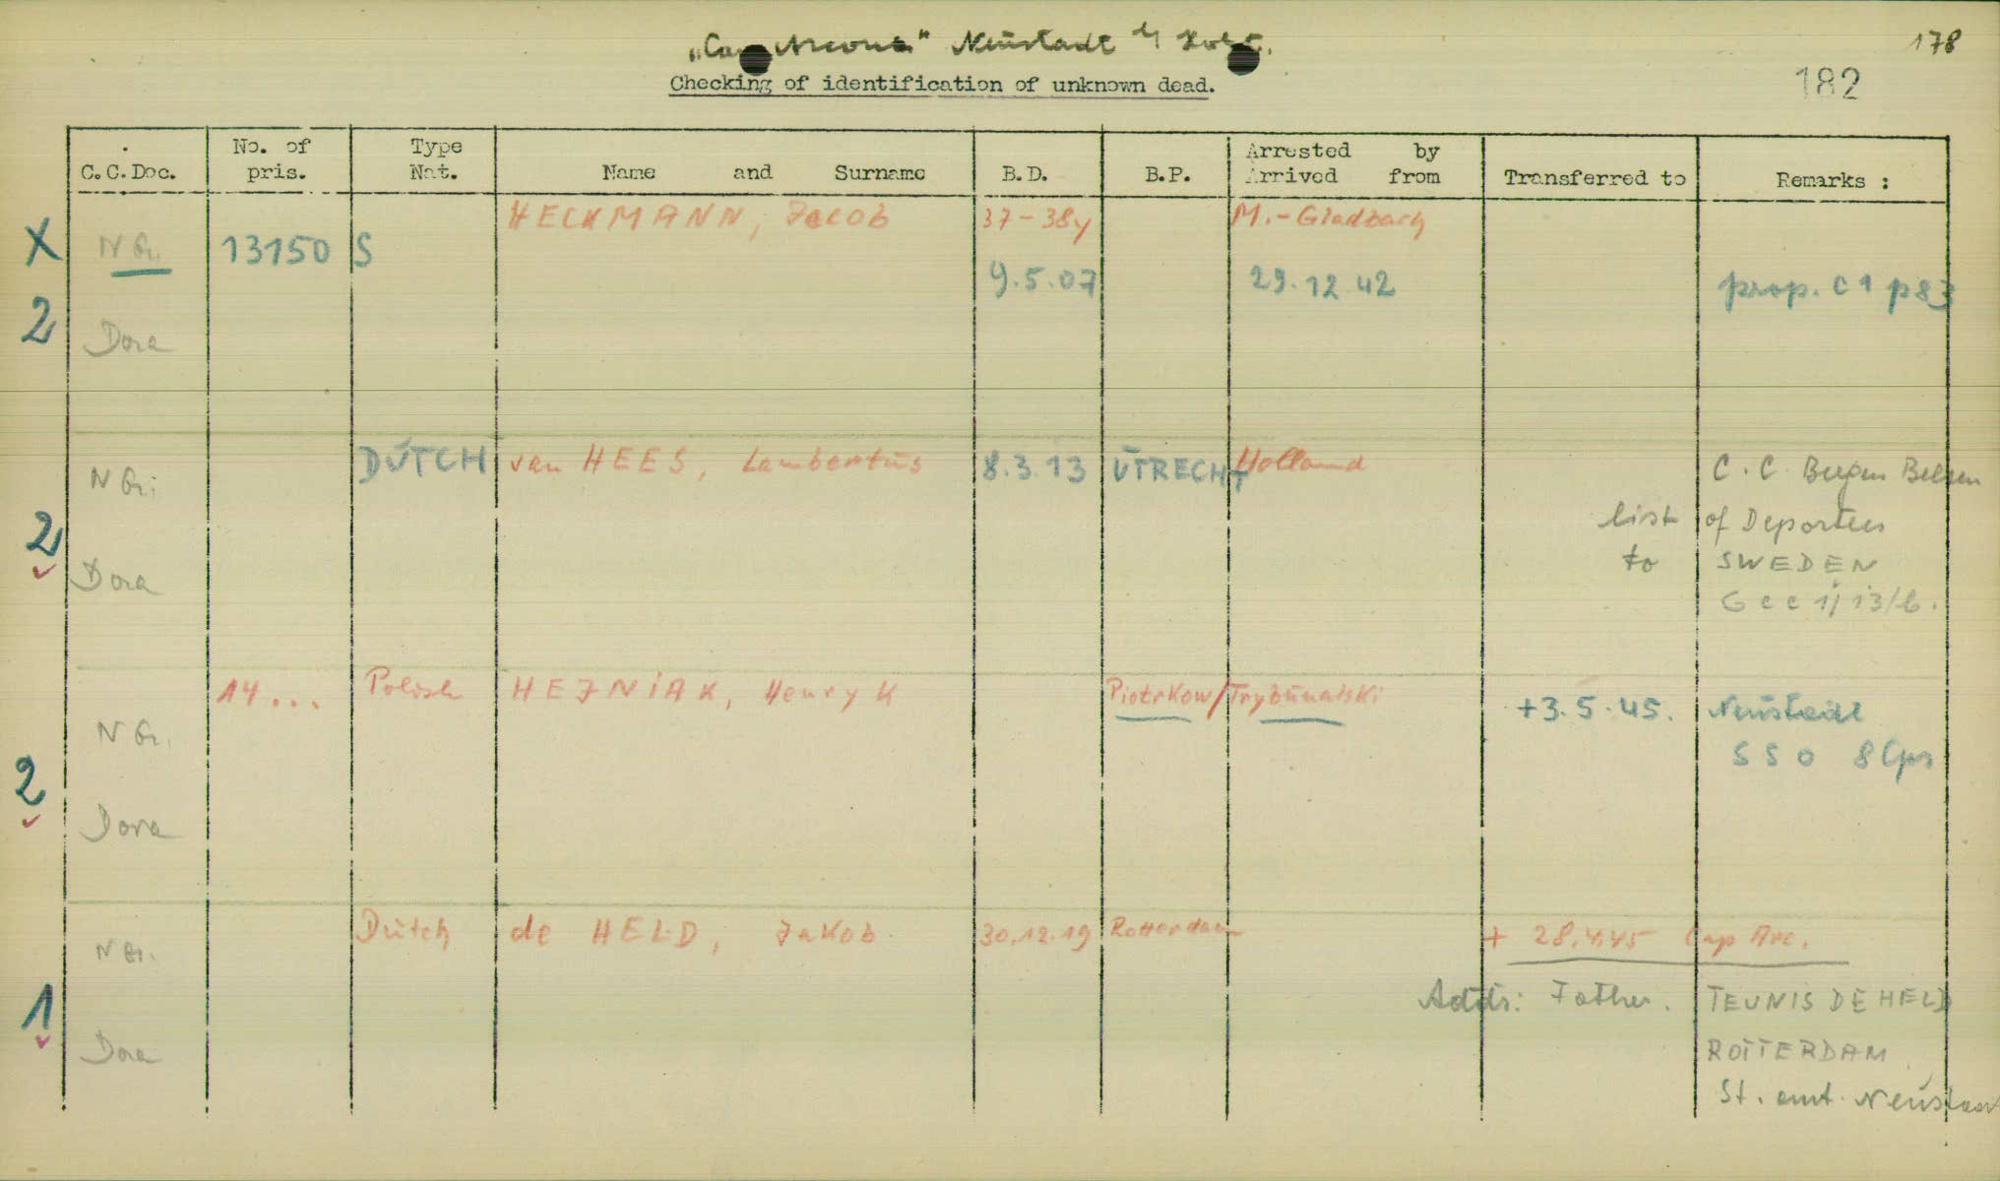 "Cap Arcona" Neustadt i/ Holst.
178
Checking of identification of unknown dead.
182
C.C.Doc. No. of pris. Type Nat. Name and Surname B.D. B.P. Arrested by Arrived from Transferred to Remarks :
HECKMANN, Jacob 37-38y M.-Gladbach
X N Gr. 13150 S
9.5.07 29.12.42 prop. C1 p83
2 Dora
DUTCH van HEES, Lambertus 8.3.13 UTRECHT Holland C.C Bergen Belsen
N Gr:
list of Deportees
2
to SWEDEN
Dora
Gcc 1/13/6.
14... Polish HEJNIAK, Henryk Piotrkow/Trybunalski +3.5.45. Neustadt
N Gr.
SSO
2
Dora
Dutch de HELD, Jakob 30.12.19 Rotterdam + 28.4.45 Cap Arc.
N Gr.
1 Addr: Father. TEUNIS DE HELD
Dora ROTTERDAM
St. amt. Neustadt